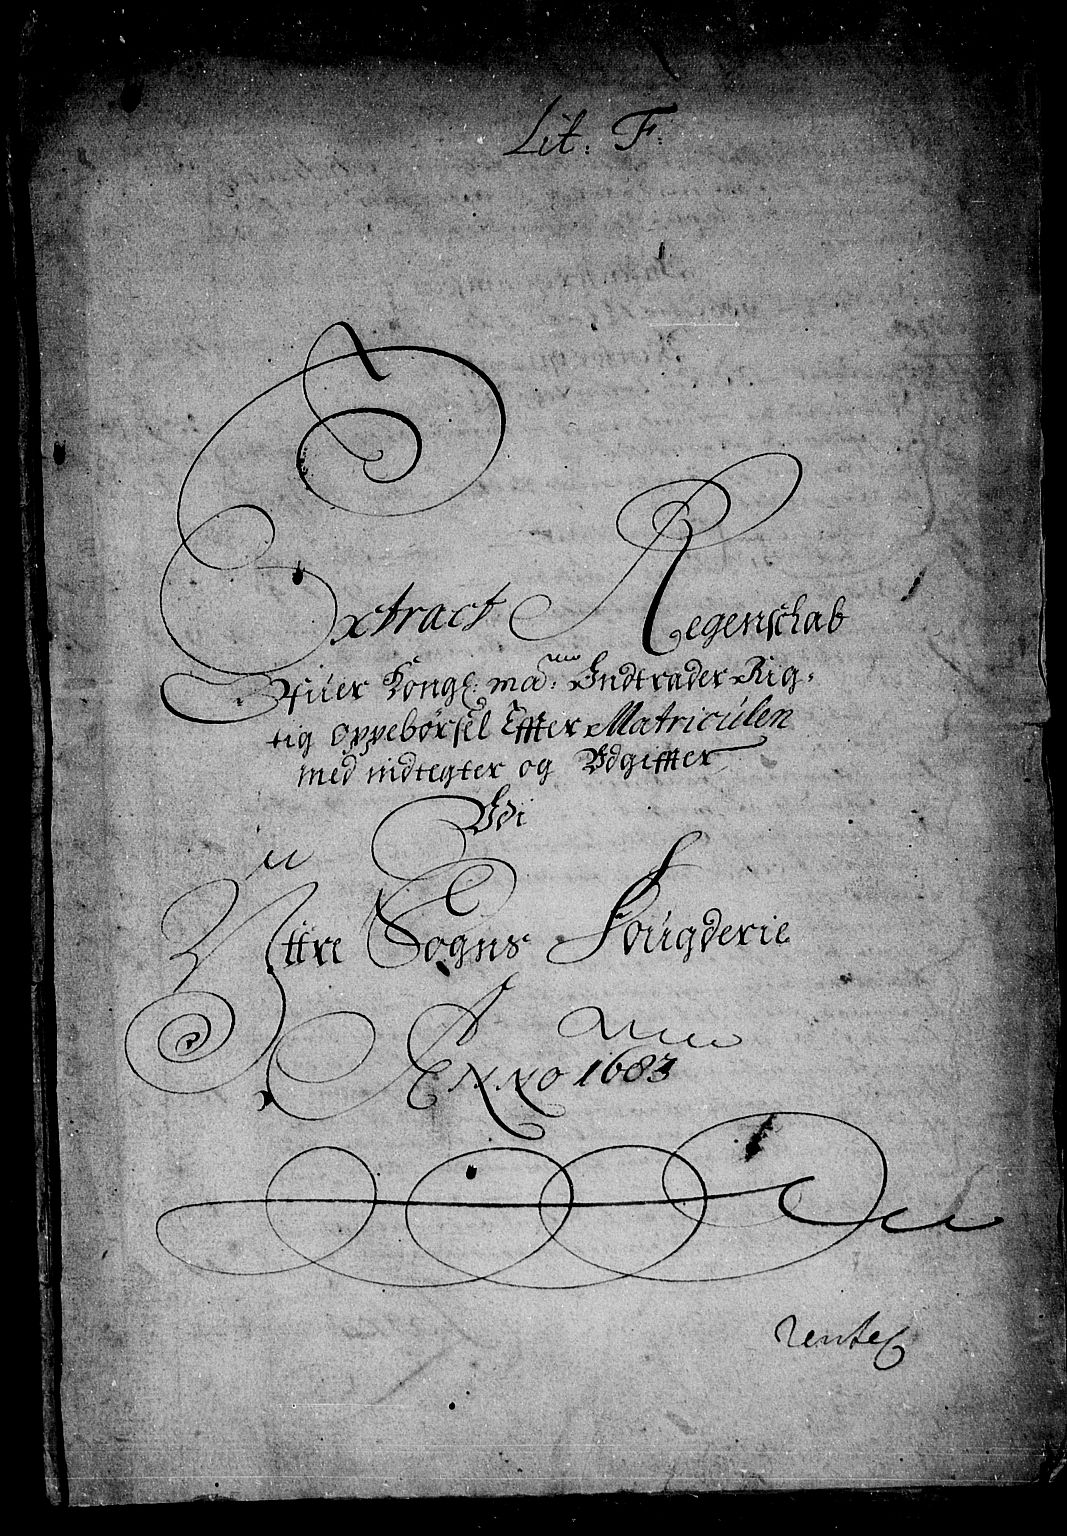 Lit: F.
Extract Regenschab
Ofuer Kongl: ma: Indtrader Rig-
tig oppebørsel Effter Matriculen
med indtegter og Vdgiffter
Vdi
Yttre Sogns Fougderie
ANNO 1683